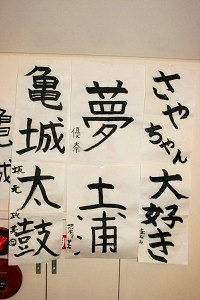 さやちゃん
大好き
夢
優奈
土浦
亀城
太鼓
亀城